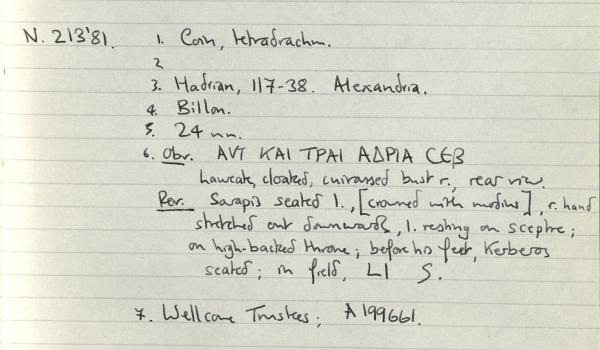 N. 213'81. 1. Coin, tetradrachm.
2
3. Hadrian, 117-38. Alexandria.
4. Billon.
5. 24 mm.
6. Obv. AVT KAI TPAI AΔPIA CЄB
laureate, cloaked, cuirassed bust r., rear view.
Rev. Sarapis seated l., [crowned with modius], r. hand
stretched out downwards, l. resting on sceptre;
on high-backed throne; before his feet, Kerberos
seated; in field, LI S.
7. Wellcome Trustees; A199661.